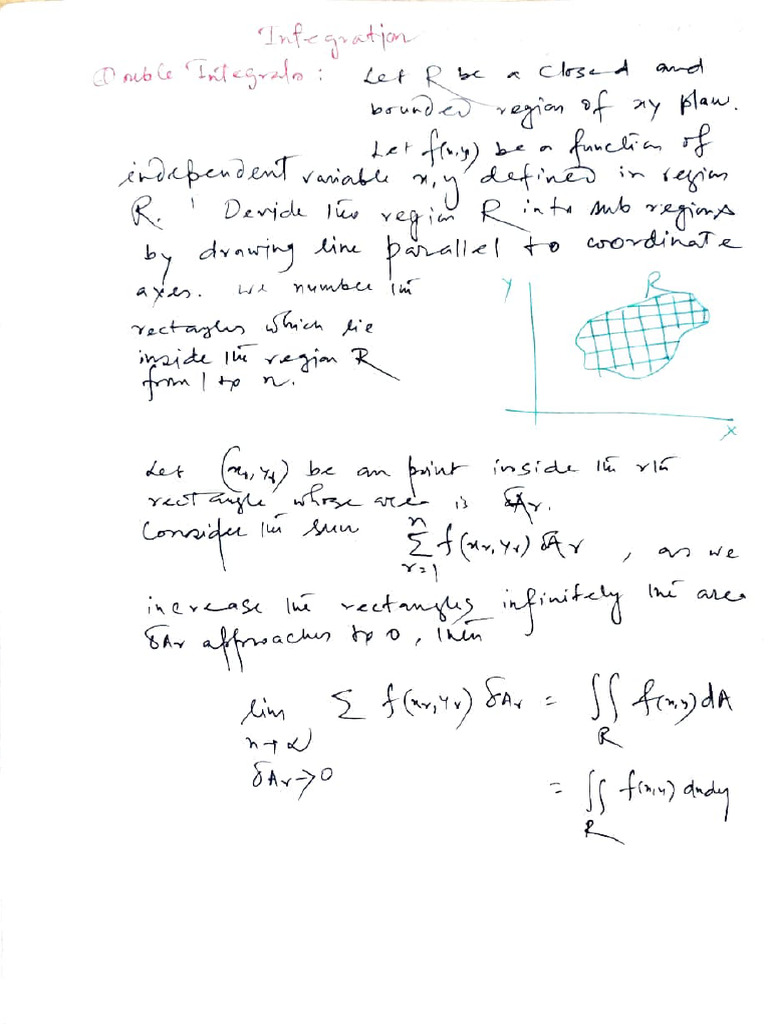 Integration
Double Integrals : Let R be a closed and
bounded region of xy plan.
Let f(x,y) be a function of
independent variable x, y defined in region
R. Devide the region R into sub regions
by drawing line parallel to coordinate
axes. We number the
rectangles which lie
inside the region R
from 1 to n.
Y
R
X
Let (xr, yr) be an point inside the rth
rectangle whose area is δAr.
Consider the sum n∑r=1 f(xr, yr) δAr , as we
increase the rectangles infinitely the area
δAr approaches to 0, then
lim n→∞ δAr→0 ∑ f(xr, yr) δAr = ∬R f(x,y) dA
= ∬R f(x,y) dxdy